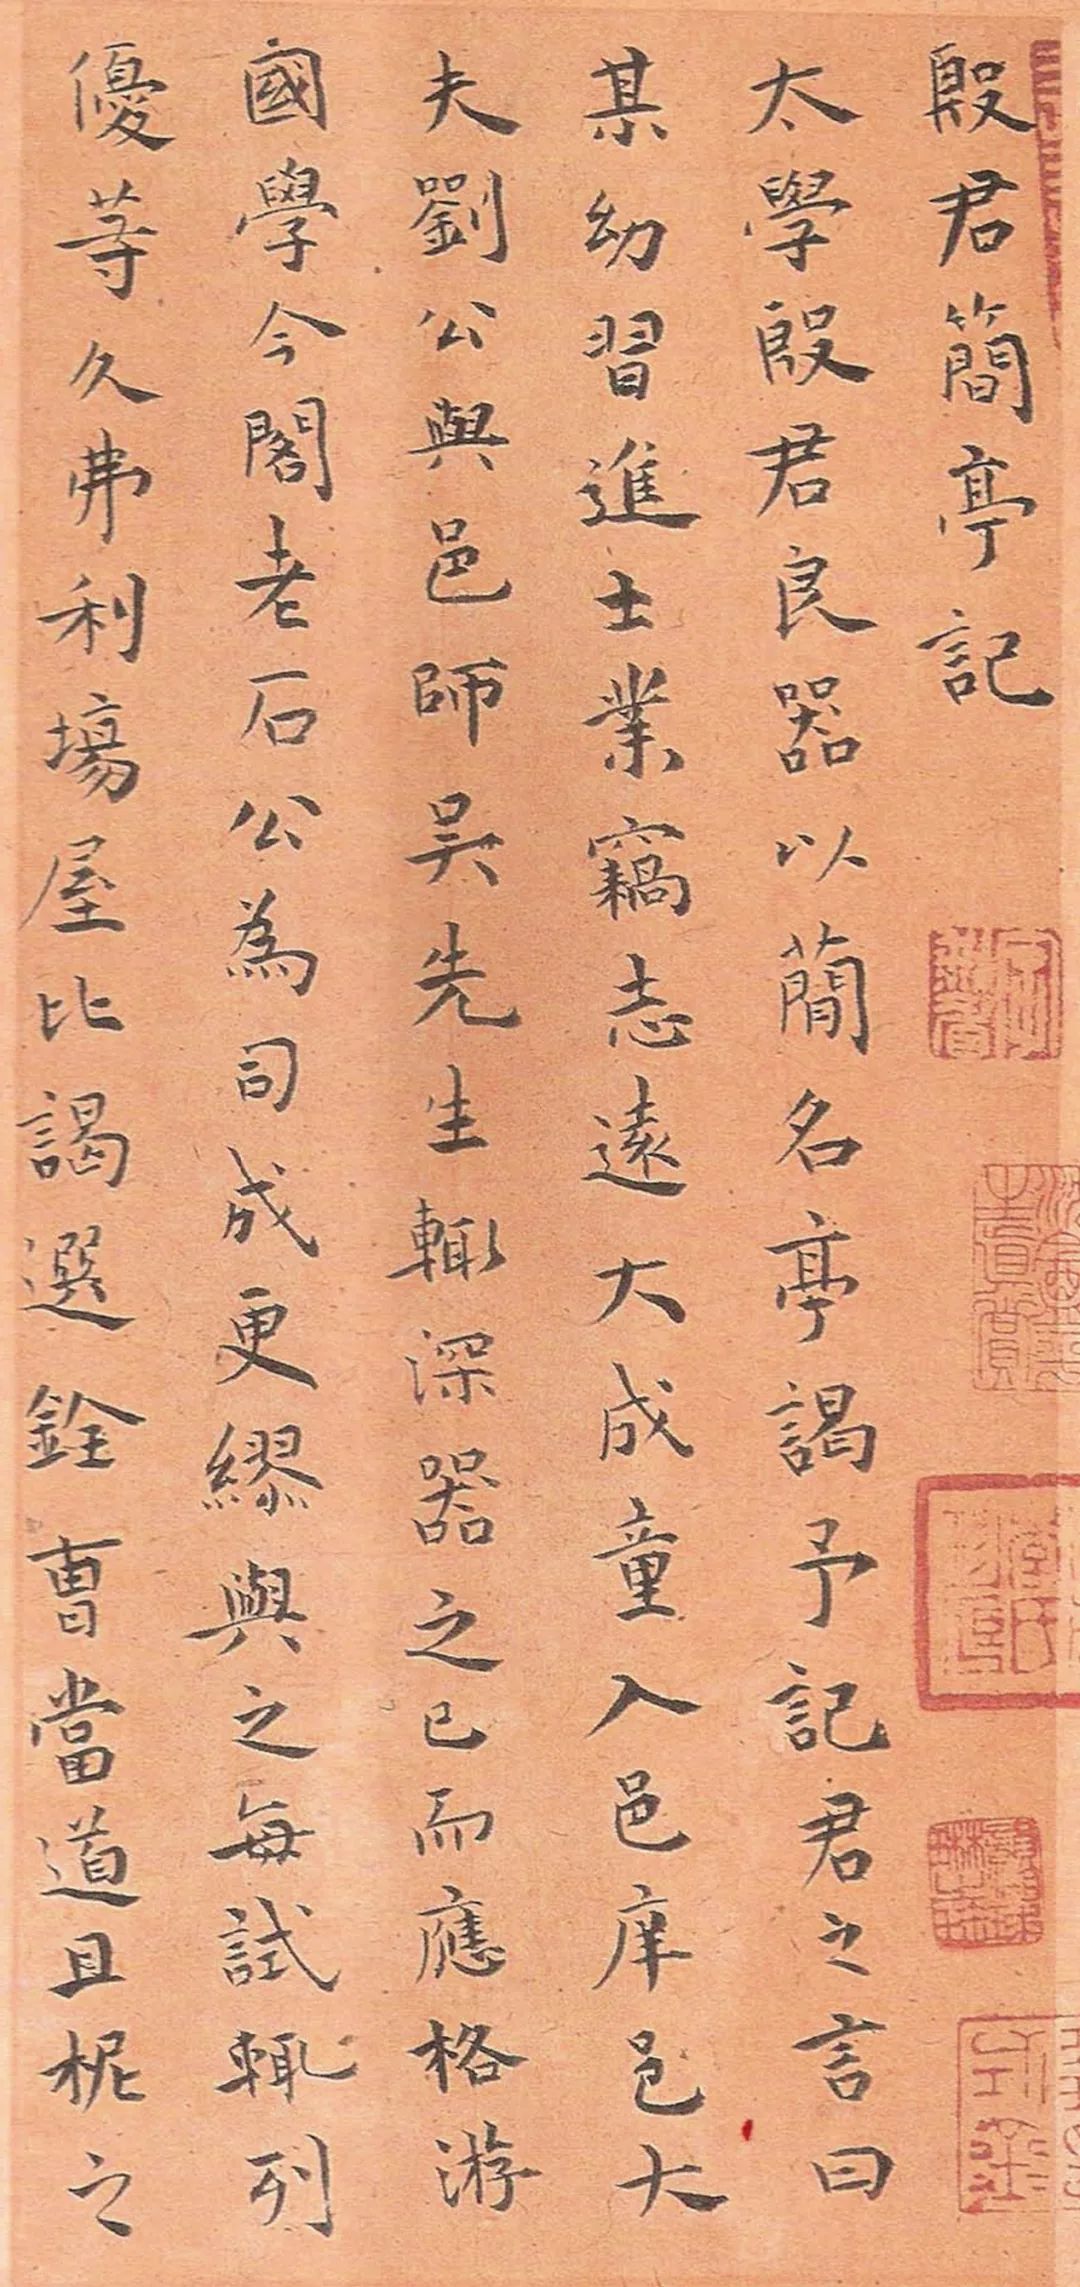 殷君簡亭記
太學殷君良器以蕳名亭謁予記君之言曰
某幼習進士業竊志遠大成童入邑庠邑大
夫劉公與邑師吴先生輙深器之已而應格游
國學今閣老石公為司成更繆與之每試輒列
優等久弗利場屋比謁選銓曹當道且柅之